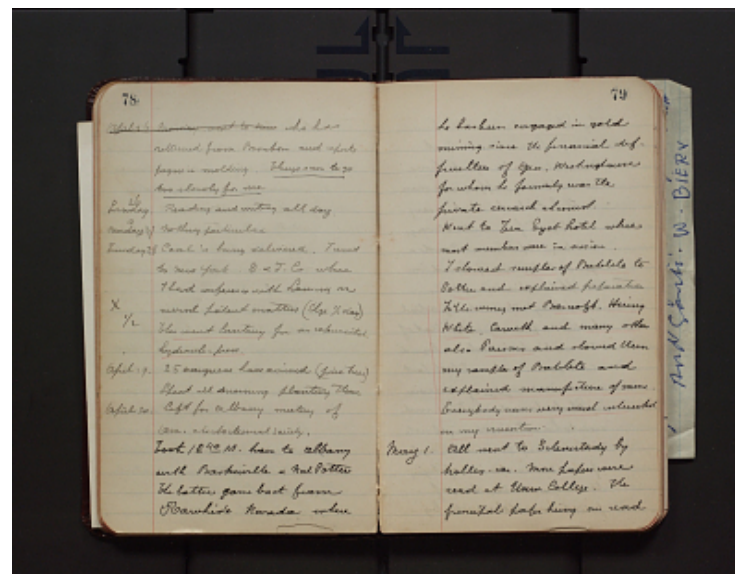 78
who has
returned from Boonton and reports
progress molding. Things seem to go
too slowly for me
Sunday Reading and writing all day
Monday Nothing particular
Tuesday Coal is being delivered. I went
to New York where
I had conference with on
patent matters
hunting for an
hydraulic press.
April 29. 25 have arrived (pine trees)
Spent all morning planting them
April 30. Left for Albany meeting of
Am. electrochemical society.
Took to Albany
with Baskerville &
The latter came back from
Rawhide Nevada where
79
he has been engaged in gold
mining since the financial dif-
ficulties of Geo. Westinghouse
for whom he formerly was the
private research chemist.
Went to Ten Eyck hotel where
most members were in session.
I showed samples of Bakelite to
Potter and explained preparation
evening met Bancroft. Hering
White. and many others
also Parsons and showed them
my samples of Bakelite and
explained manufacture of same.
Everybody seems very much interested
in my invention.
May 1. All went to Schenectady by
trolley-car. More papers were
read at Union College. The
principal paper being read
W. BIERY